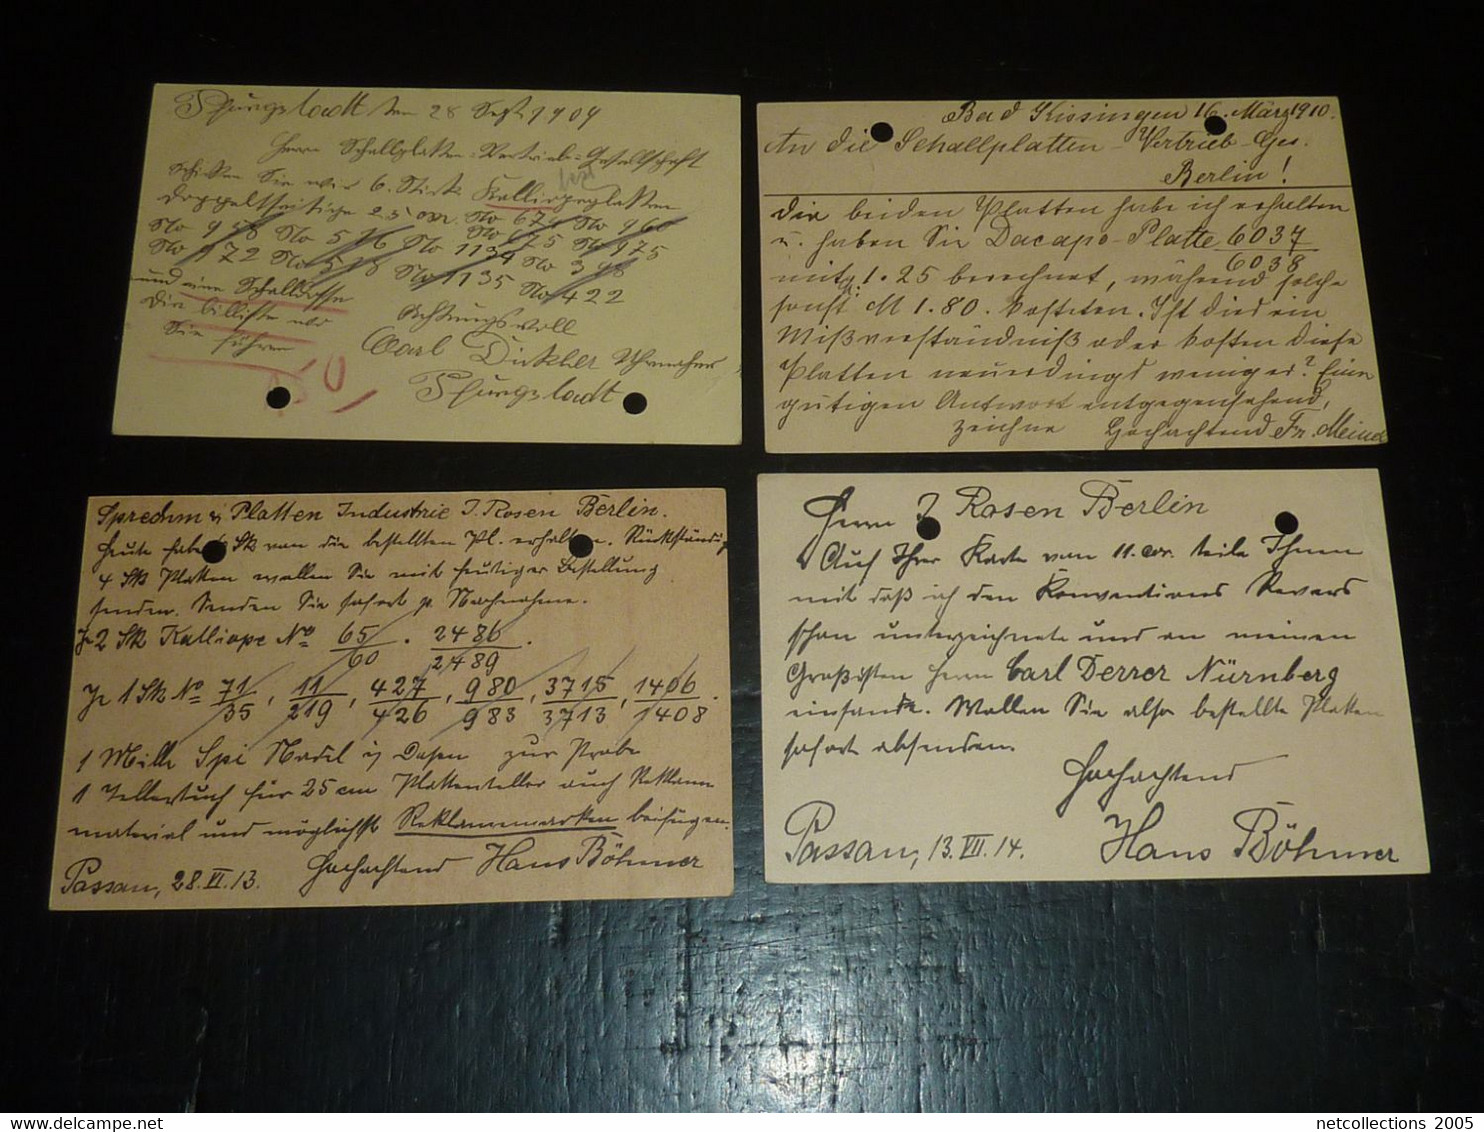 Pfungstadt den 28 Sept 1909
Herrn Schallplatten-Vertrieb-Gesellschaft
Schicken Sie mir 6. Stück Kalliopeplatten
doppelseitige 25 cm. No 674 No 960
No 958 No 516 No 1134 No 675 No 975
No 972 No 515 No 1135 No 398
No 422
und eine Schalldose
die billigste wo
Sie führen
Achtungsvoll
Carl Dickler Uhrmacher
Pfungstadt
Bad Kissingen 16. März 1910.
An die Schallplatten-Vertrieb-Ges.
Berlin!
Die beiden Platten habe ich erhalten
u. haben Sie Dacapo-Platte 6037
6038
mit 1.25 berechnet, während solche
sonst M 1.80. kosteten. Ist dies ein
Mißverständniß oder kosten diese
Platten neuerdings weniger? Einer
gütigen Antwort entgegensehend,
zeichne Hochachtend Fr. Meind
Sprechm & Platten Industrie J. Rosen Berlin.
Heute habe Stk von die bestellten Pl. erhalten. Rückständig
4 Stk Platten wollen Sie mit heutiger Bestellung
senden. Senden Sie sofort p. Nachnahme.
Je 2 Stk Kalliope No 65/60 . 2486/2489 .
Je 1 Stk No 71/35, 11/219, 427/426, 980/983, 3715/3713, 1406/1408.
1 Mille Spi Nadel in Dosen zur Probe
1 Tellertuch für 25 cm Plattenteller auch Reklame
material und möglichst Reklamemarken beifügen.
Passau, 28.VI.13. Hochachtend Hans Böhmer
Herrn J Rosen Berlin
Auf Ihrer Karte vom 11. cor. teile Ihnen
mit daß ich den Konventions Revers
schon unterzeichnete und an meinen
Großisten Herrn Carl Derrer Nürnberg
einsandte. Wollen Sie also bestellte Platten
sofort absenden.
Hochachtend
Passau, 13.VII.14. Hans Böhmer
netcollections 2005